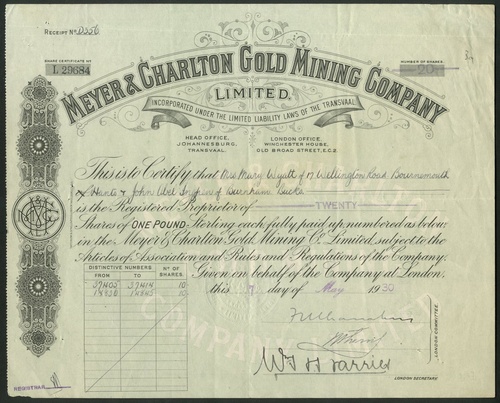 RECEIPT No 0556
SHARE CERTIFICATE No
L 29684
NUMBER OF SHARES
20
MEYER & CHARLTON GOLD MINING COMPANY
LIMITED.
INCORPORATED UNDER THE LIMITED LIABILITY LAWS OF THE TRANSVAAL
HEAD OFFICE, JOHANNESBURG, TRANSVAAL
LONDON OFFICE, WINCHESTER HOUSE, OLD BROAD STREET, E.C.2.
This is to Certify that Mrs Mary Wyatt of 17 Wellington Road Bournemouth
Hants & John Abel of Burnham Bucks
is the Registered Proprietor of TWENTY
Shares of ONE POUND Sterling each fully paid up, numbered as below
in the Meyer & Charlton Gold Mining Co. Limited subject to the
Articles of Association and Rules and Regulations of the Company.
DISTINCTIVE NUMBERS
FROM TO
No OF SHARES
Given on behalf of the Company at London,
37405 37414 10
10
this day of May 1930
LONDON COMMITTEE
LONDON SECRETARY
REGISTRAR